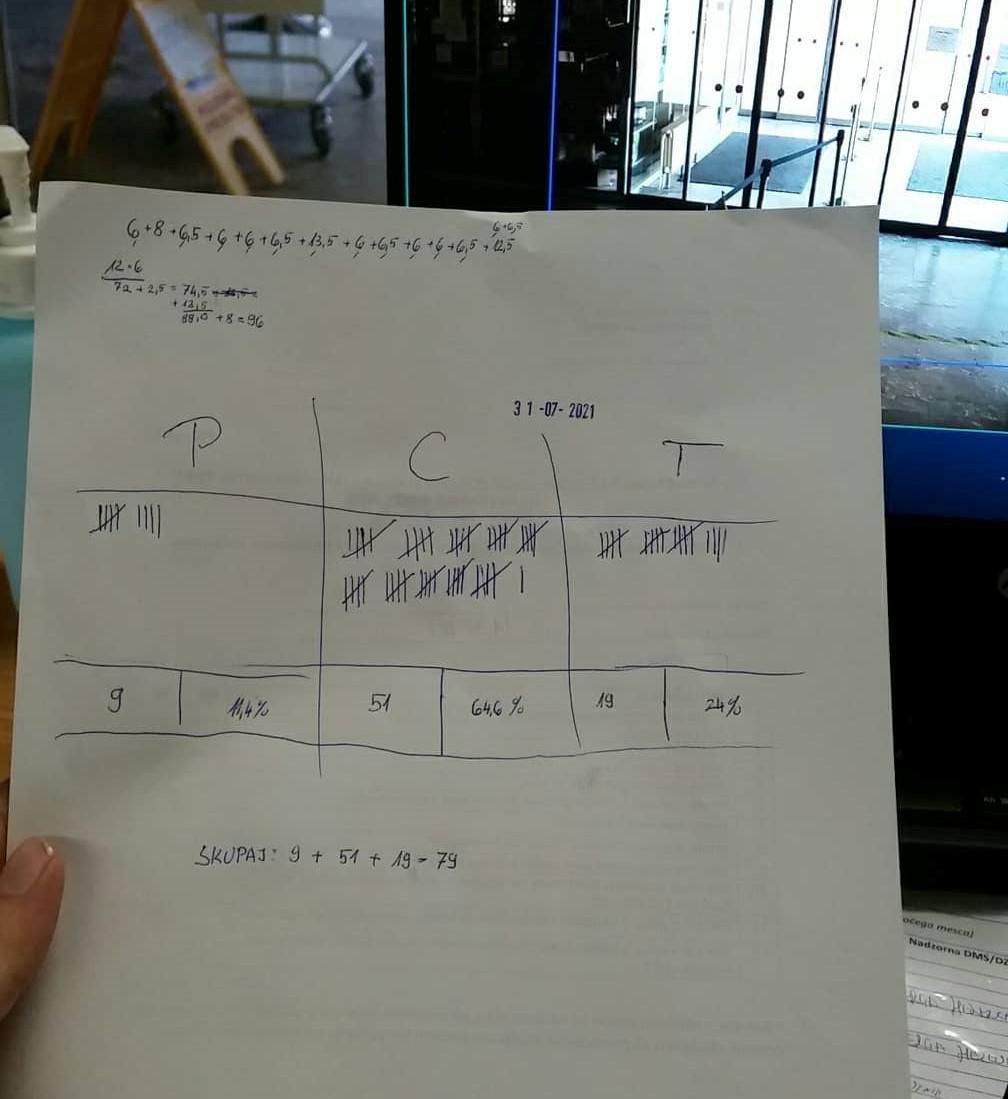 6+6,5
6+8+6,5+6+6+6,5+13,5+6+6,5+6+6+6,5+12,5
12·6
72+2,5=74,5
+13,5
88,0+8=96
31-07-2021
P C T
9 11,4% 51 64,6% 19 24%
SKUPAJ: 9 + 51 + 19 = 79
Nadzorna DMS/DZ